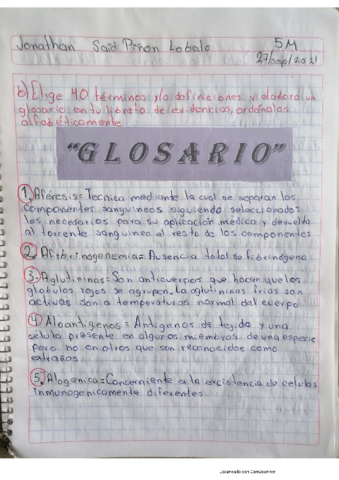 Jonathan Said Piñon Lobato
5M
27/sep/2021
b) Elige 40 términos y/o definiciones y elabora un
glosario en tu libreta de evidencias, ordénalos
alfabéticamente
"GLOSARIO"
1. Aféresis = Tecnica mediante la cual se separan los
componentes sanguineos siguiendo seleccionados
los necesarios para su aplicación medica y devuelta
al torrente sanguineo el resto de los componentes
2. Afibrinogenemia = Ausencia total su fibrinógeno
3. Aglutininas = Son anticuerpos que hacen que los
globulos rojos se agrupen, la aglutininas frias son
activas son a temperaturas normal del cuerpo
4. Aloantigenos = Antigenos de tejido y una
celula presente en algunos miembros de una especie
pero no en otros que son reconocidos como
extraños
5. Alogenica = Concerniente a la existencia de celulas
inmunogenicamente diferentes.